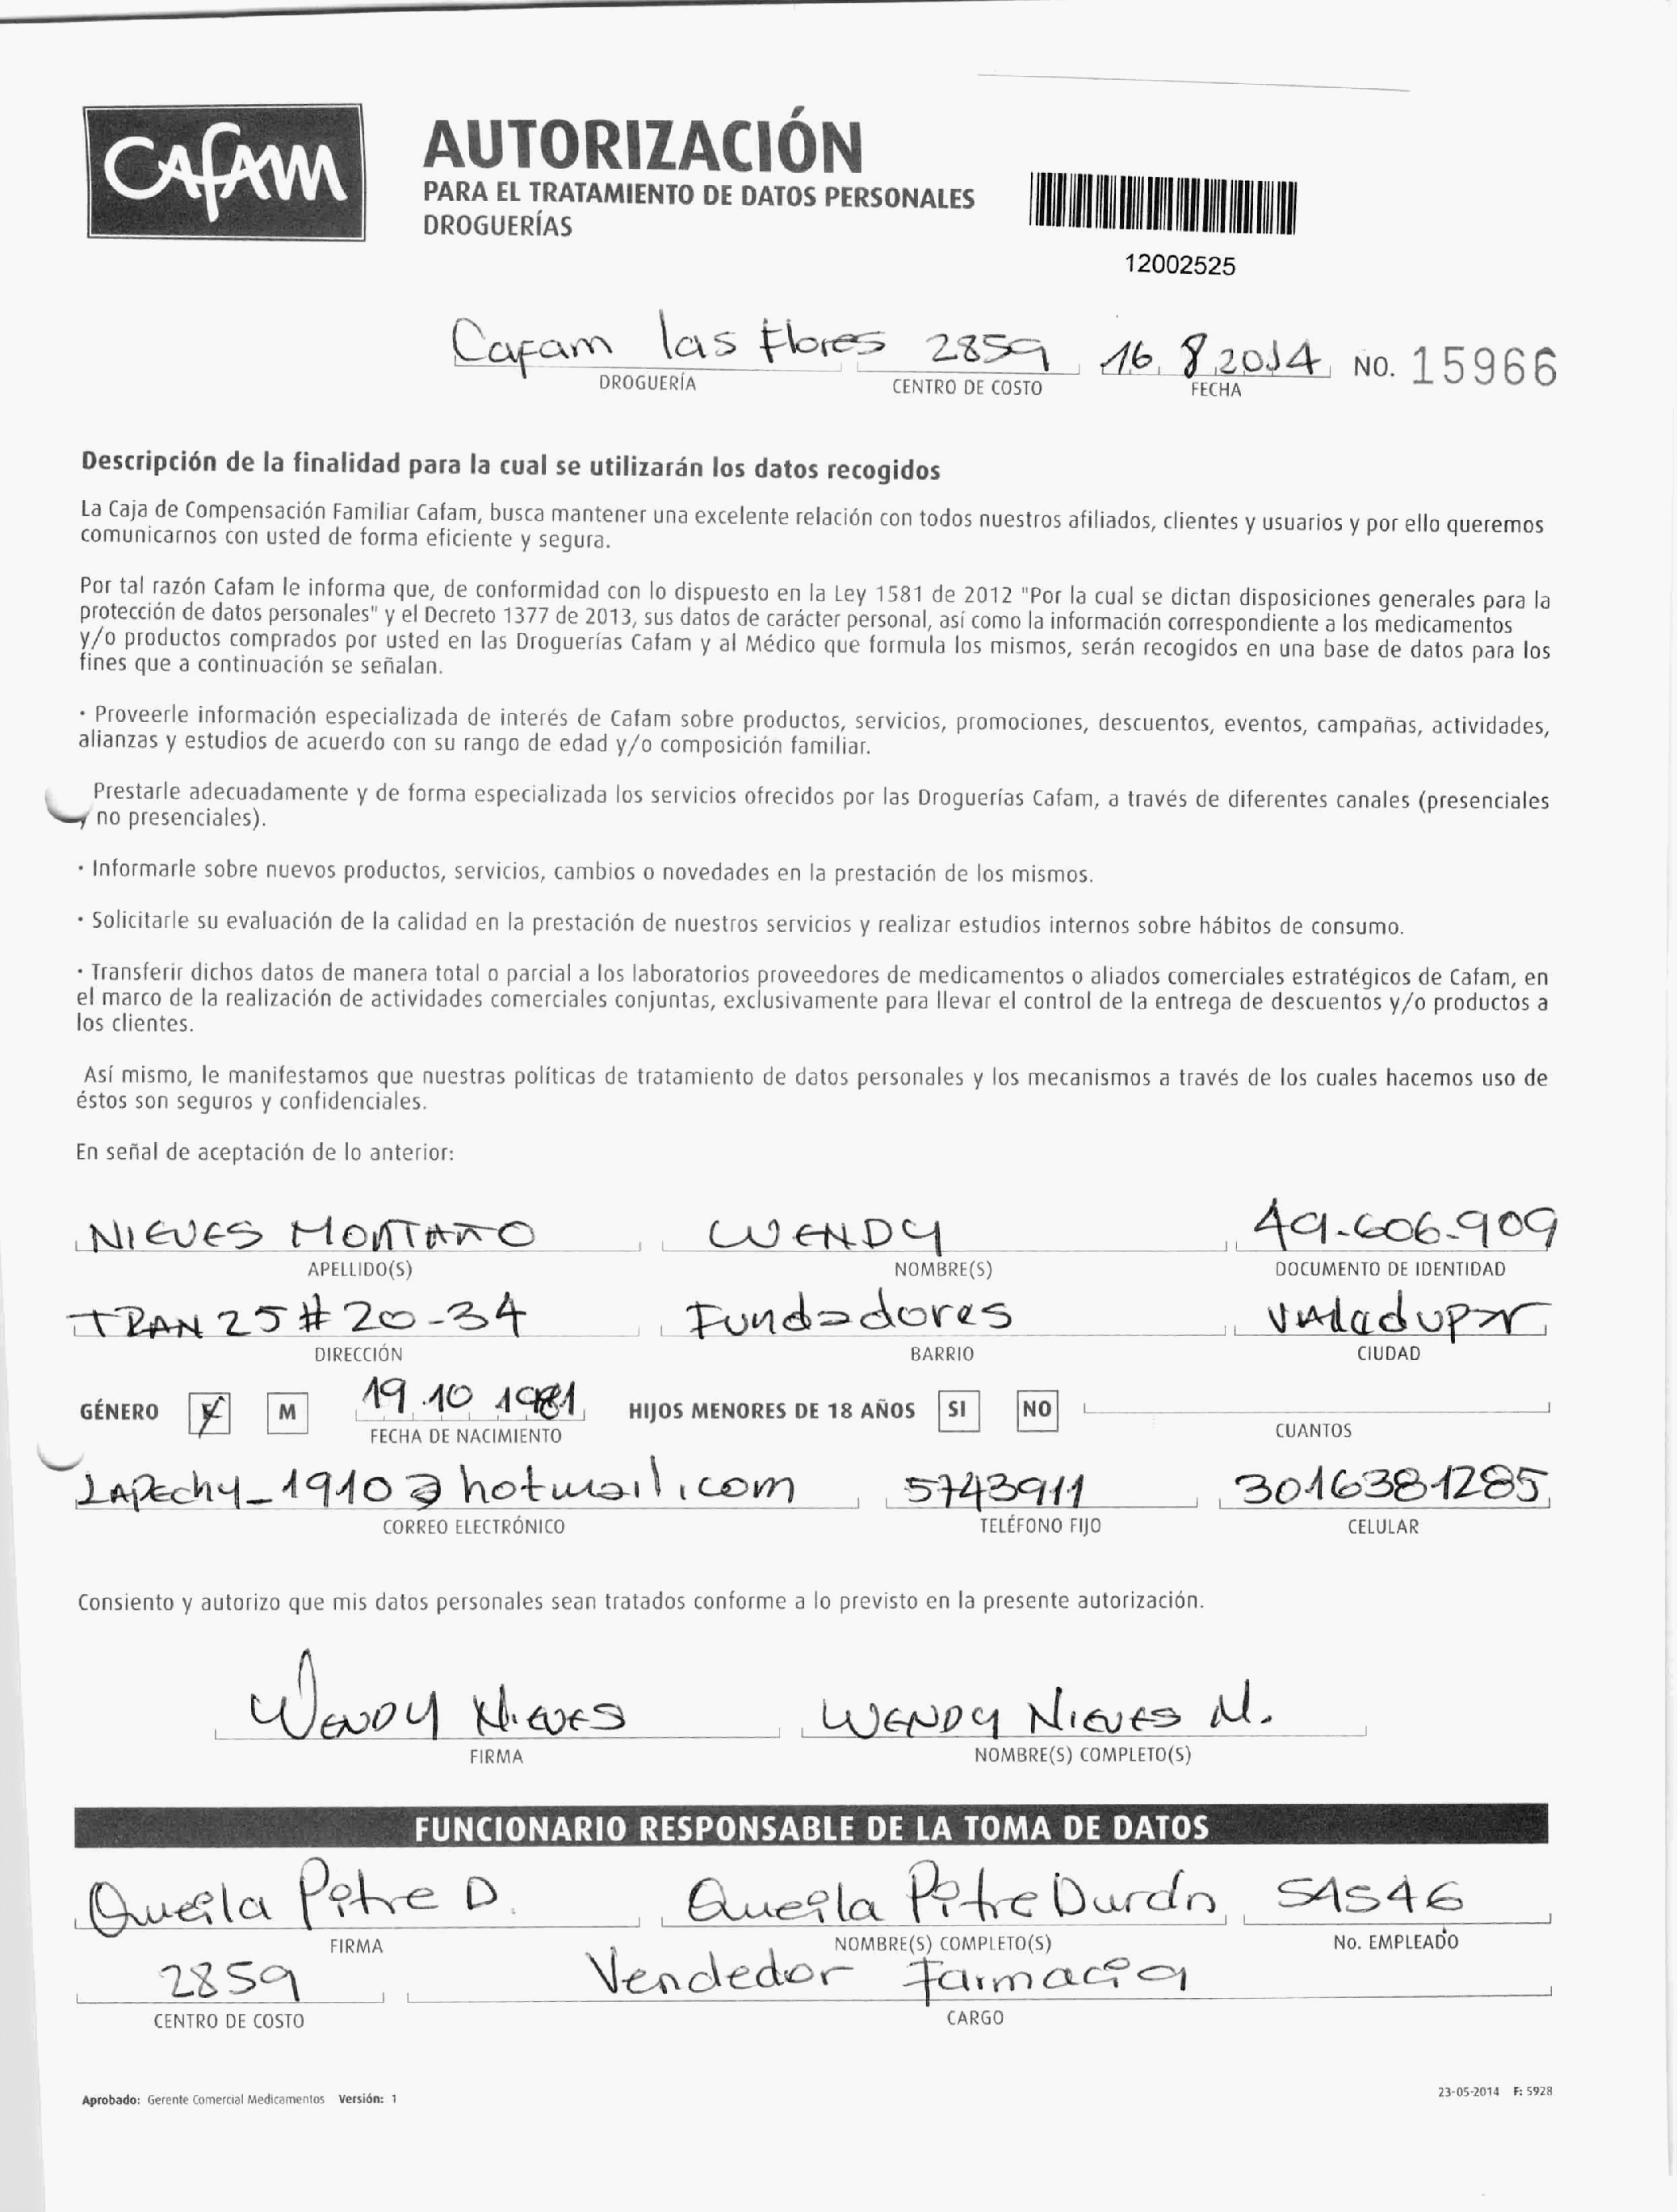 Cafam
AUTORIZACIÓN
PARA EL TRATAMIENTO DE DATOS PERSONALES
DROGUERÍAS
12002525
Cafam las flores 2859 16 8 2014 NO. 15966
DROGUERÍA CENTRO DE COSTO FECHA
Descripción de la finalidad para la cual se utilizarán los datos recogidos
La Caja de Compensación Familiar Cafam, busca mantener una excelente relación con todos nuestros afiliados, clientes y usuarios y por ello queremos
comunicarnos con usted de forma eficiente y segura.
Por tal razón Cafam le informa que, de conformidad con lo dispuesto en la Ley 1581 de 2012 "Por la cual se dictan disposiciones generales para la
protección de datos personales" y el Decreto 1377 de 2013, sus datos de carácter personal, así como la información correspondiente a los medicamentos
y/o productos comprados por usted en las Droguerías Cafam y al Médico que formula los mismos, serán recogidos en una base de datos para los
fines que a continuación se señalan.
· Proveerle información especializada de interés de Cafam sobre productos, servicios, promociones, descuentos, eventos, campañas, actividades,
alianzas y estudios de acuerdo con su rango de edad y/o composición familiar.
Prestarle adecuadamente y de forma especializada los servicios ofrecidos por las Droguerías Cafam, a través de diferentes canales (presenciales
y no presenciales).
· Informarle sobre nuevos productos, servicios, cambios o novedades en la prestación de los mismos.
· Solicitarle su evaluación de la calidad en la prestación de nuestros servicios y realizar estudios internos sobre hábitos de consumo.
· Transferir dichos datos de manera total o parcial a los laboratorios proveedores de medicamentos o aliados comerciales estratégicos de Cafam, en
el marco de la realización de actividades comerciales conjuntas, exclusivamente para llevar el control de la entrega de descuentos y/o productos a
los clientes.
Así mismo, le manifestamos que nuestras políticas de tratamiento de datos personales y los mecanismos a través de los cuales hacemos uso de
éstos son seguros y confidenciales.
En señal de aceptación de lo anterior:
NIEVES MONTAÑO WENDY 49.606.909
APELLIDO(S) NOMBRE(S) DOCUMENTO DE IDENTIDAD
TRAN 25 # 20-34 Fundadores Valladupar
DIRECCIÓN BARRIO CIUDAD
GÉNERO F M 19 10 1981 HIJOS MENORES DE 18 AÑOS SI NO
FECHA DE NACIMIENTO CUANTOS
LAPechy_1910@hotmail.com 5743911 3016381285
CORREO ELECTRÓNICO TELÉFONO FIJO CELULAR
Consiento y autorizo que mis datos personales sean tratados conforme a lo previsto en la presente autorización.
Wendy Nieves WENDY NIEVES M.
FIRMA NOMBRE(S) COMPLETO(S)
FUNCIONARIO RESPONSABLE DE LA TOMA DE DATOS
Queila Pitre D. Queila Pitre Durán 51546
FIRMA NOMBRE(S) COMPLETO(S) No. EMPLEADO
2859 Vendedor farmacia
CENTRO DE COSTO CARGO
Aprobado: Gerente Comercial Medicamentos Versión: 1 23-05-2014 F: 5928